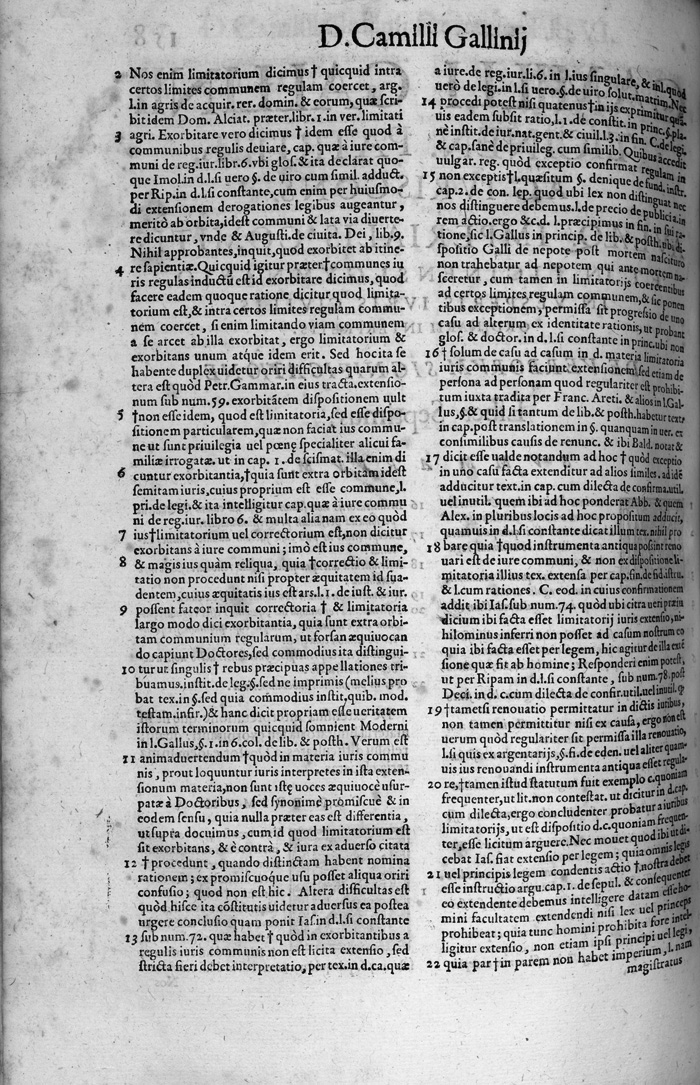 D. Camilli Gallinij
2 Nos enim limitatorium dicimus † quicquid intra
certos limites communem regulam coercet, arg.
l. in agris de acquir. rer. domin. & eorum, quæ scri-
bit idem Dom. Alciat. præter. libr. 1. in ver. limitati
3 agri. Exorbitare vero dicimus † idem esse quod à
communibus regulis deuiare, cap. quæ à iure com-
muni de reg. iur. libr. 6. vbi glos. & ita declarat quo-
que Imol. in d. l. si uero §. de uiro cum simil. adduct.
per Rip. in d. l. si constante, cum enim per huiusmo-
di extensionem derogationes legibus augeantur,
meritò ab orbita, idest communi & lata via diuerte-
re dicuntur, vnde & Augusti. de ciuita. Dei, lib. 9.
Nihil approbantes, inquit, quod exorbitet ab itine-
4 re sapientiæ. Quicquid igitur præter † communes iu
ris regulas inductũ est id exorbitare dicimus, quod
facere eadem quoque ratione dicitur quod limita-
torium est, & intra certos limites regulam commu-
nem coercet, si enim limitando viam communem
a se arcet ab illa exorbitat, ergo limitatorium &
exorbitans unum atque idem erit. Sed hoc ita se
habente duplex uidetur oriri difficultas quarum al-
tera est quòd Petr. Gammar. in eius tracta. extensio-
num sub num. 59. exorbitãtem dispositionem uult
5 † non esse idem, quod est limitatoria, sed esse dispo-
sitionem particularem, quæ non faciat ius commu-
ne ut sunt priuilegia uel pœnę specialiter alicui fa-
miliæ irrogatæ. ut in cap. 1. de scismat. illa enim di
6 cuntur exorbitantia, † quia sunt extra orbitam idest
semitam iuris, cuius proprium est esse commune, l.
pri. de legi. & ita intelligitur cap. quæ à iure commu
ni de reg. iur. libro 6. & multa alia nam ex eo quòd
7 ius † limitatorium uel correctorium est, non dicitur
exorbitans à iure communi; imò est ius commune,
8 & magis ius quàm reliqua, quia † correctio & limi-
tatio non procedunt nisi propter æquitatem id sua-
dentem, cuius æquitatis ius est ars. l. 1. de iust. & iur.
9 possent fateor inquit correctoria † & limitatoria
largo modo dici exorbitantia, quia sunt extra orbi-
tam communium regularum, ut forsan æquiuocan
do capiunt Doctores, sed commodius ita distingui-
10 tur ut singulis † rebus præcipuas appellationes tri-
buamus. instit. de leg. §. sed ne imprimis (melius pro
bat tex. in §. sed quia com̃modius instit, quib. mod.
testam. infir.) & hanc dicit propriam esse ueritatem
istorum terminorum quicquid somnient Moderni
in l. Gallus, §. 1. in 6. col. de lib. & posth. Verum est
11 animaduertendum † quòd in materia iuris commu
nis, prout loquuntur iuris interpretes in ista exten-
sionum materia, non sunt istę uoces æquiuocè usur-
patæ à Doctoribus, sed synonimè promiscuè & in
eodem sensu, quia nulla præter eas est differentia,
ut supra docuimus, cum id quod limitatorium est
sit exorbitans, & è contrà, & iura ex aduerso citata
12 † procedunt, quando distinctam habent nomina
rationem; ex promiscuoque usu posset aliqua oriri
confusio; quod non est hic. Altera difficultas est
quòd hisce ita cõstitutis uidetur aduersus ea postea
urgere conclusio quam ponit Ias. in d. l. si constante
13 sub num. 72. quæ habet † quòd in exorbitantibus a
regulis iuris communis non est licita extensio, sed
stricta fieri debet interpretatio, per tex. in d. ca. quæ
a iure. de reg. iur. li. 6. in l. ius singulare, & in l. quod
uerò de legi. in l. si uero. §. de uiro solut. matrim. Nec
14 procedi potest nisi quatenus † in ijs exprimitur quã-
uis eadem subsit ratio, l. 1. de constit. in princ. §. pla-
nè instit. de iur. nat. gent. & ciuil. l. 3. in fin. C. de legi.
& cap. sanè de priuileg. cum similib. Quibus accedit
uulgar. reg. quòd exceptio confirmat regulam in
15 non exceptis † l. quæsitum §. denique de fund. instr.
cap. 2. de con. lep. quod ubi lex non distinguat nec
nos distinguere debemus. l. de precio de publicia. in
rem actio. ergo &c. d. l. præcipimus in fin. in sui ra-
tione, sic l. Gallus in princip. de lib. & posth. ubi di-
spositio Galli de nepote post mortem nascituro
non trahebatur ad nepotem qui ante mortem na-
sceretur, cum tamen in limitatorijs coercentibus
ad certos limites regulam communem, & sic ponen
tibus exceptionem, permissa sit progressio de uno
casu ad alterum ex identitate rationis, ut probant
glos. & doctor. in d. l. si constante in princ. ubi non
16 † solum de casu ad casum in d. materia limitatoria
iuris communis faciunt extensionem, sed etiam de
persona ad personam quod regulariter est prohibi-
tum iuxta tradita per Franc. Areti. & alios in l. Gal-
lus, §. & quid si tantum de lib. & posth. habetur text.
in cap. post translationem in §. quanquam in uer. ex
consimilibus causis de renunc. & ibi Bald. notat &
17 dicit esse ualde notandum ad hoc † quòd exceptio
in uno casu facta extenditur ad alios similes. ad idẽ
adducitur text. in cap. cum dilecta de confirma. util.
uel inutil. quem ibi ad hoc ponderat Abb. & quem
Alex. in pluribus locis ad hoc propositum adducit,
quamuis in d. l. si constante dicat illum tex. nihil pro
18 bare quia † quod instrumenta antiqua possint reno
uari est de iure communi, & non ex dispositione li-
mitatoria illius tex. extensa per cap. fin. de fid. instru.
& l. cum rationes. C. eod. in cuius confirmationem
addit ibi Ias. sub num. 74. quòd ubi citra ueri præiu
dicium ibi facta esset limitatorij iuris extensio, ni-
hilominus inferri non posset ad casum nostrum eo
quia ibi facta esset per legem, hic agitur de illa exté
sione quæ fit ab homine; Responderi enim potest,
ut per Ripam in d. l. si constante, sub num. 78. post
Deci. in d. c. cum dilecta de confir. util. uel inutil. q
19 † tametsi renouatio permittatur in dictis iuribus,
non tamen permittitur nisi ex causa, ergo non est
uerum quòd regulariter sit permissa illa renouatio,
l. si quis ex argentarijs, §. fi. de eden. uel aliter quam-
uis ius renouandi instrumenta antiqua esset regula-
20 re, † tamen istud statutum fuit exemplo c. quoniam
frequenter, ut lit. non contestat. ut dicitur in d. cap.
cum dilecta, ergo concludenter probatur a iuribus
limitatorijs, ut est dispositio d. c. quoniam frequen-
ter, esse licitum arguere. Nec mouet quòd ibi ut di-
cebat Ias. fiat extensio per legem; quia omnis legis
21 uel principis legem condentis actio †, nostra debet
esse instructio argu. cap. 1. de sepul. & consequenter
eo extendente debemus intelligere datam esse ho-
mini facultatem extendendi nisi lex uel princeps
prohibeat; quia tunc homini prohibita fore intel-
ligitur extensio, non etiam ipsi principi uel legi,
22 quia par † in parem non habet imperium, l. nam
magistratus